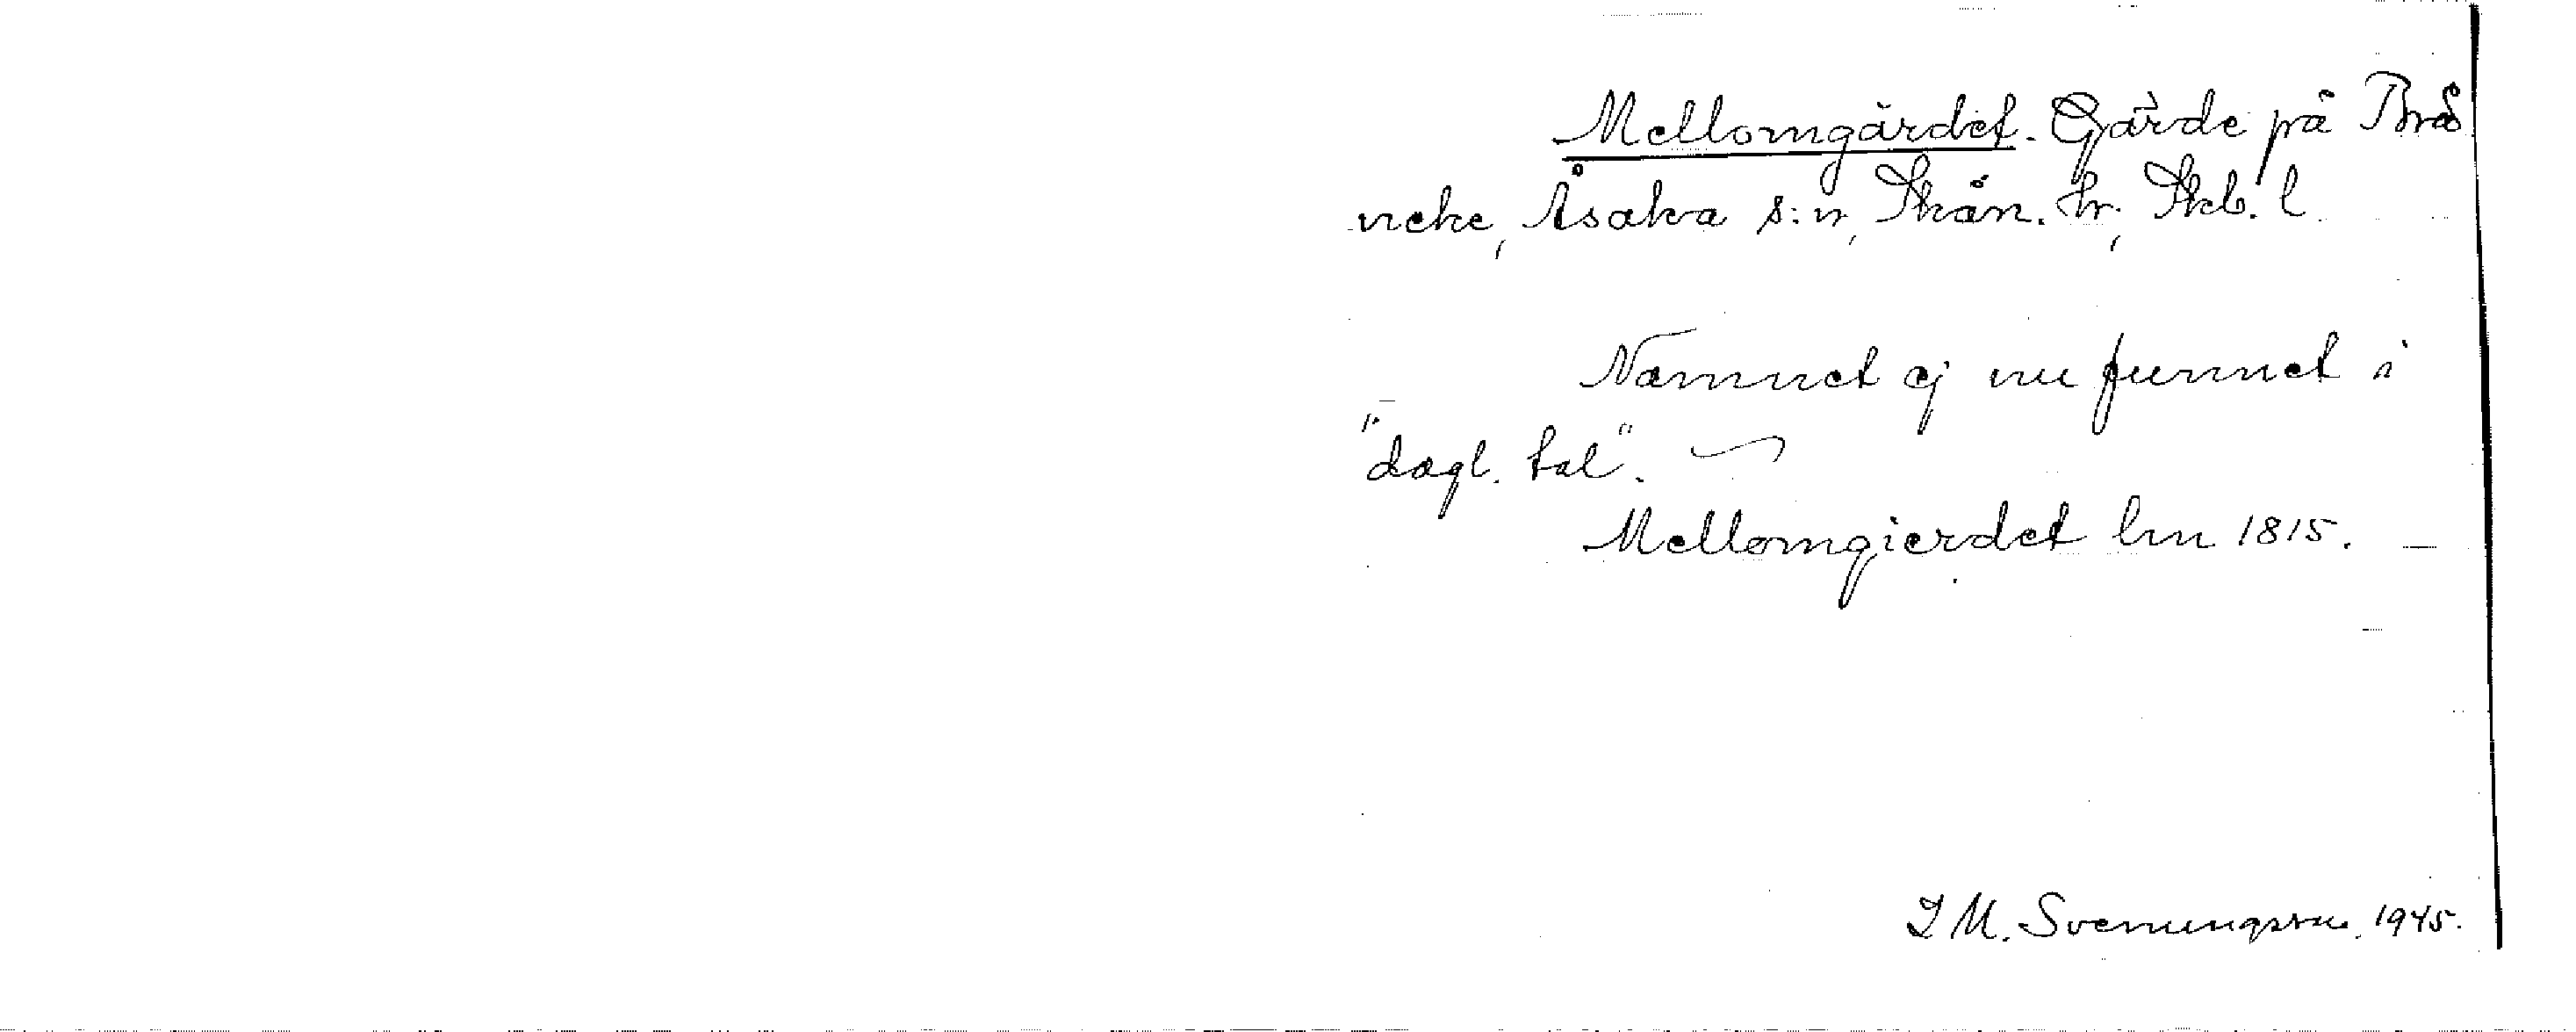 Mellomgärdet. Gärde på Brå
neke, Åsaka s:n, Skån. hr, Skb. l.
Namnet ej nu funnet i
"dagl. tal". ~
Mellomgierdet lm 1815.
I M. Svenungsson. 1945.